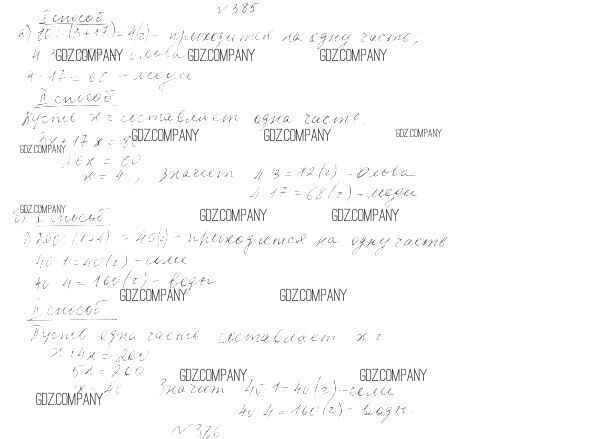 №385
I способ
а) 80:(3+17)=4(г) - приходится на одну часть,
4·3 GDZ.COMPANY олова GDZ.COMPANY GDZ.COMPANY
4·17=68 - меди
II способ
Пусть x г составляет одна часть.
3x+17x=80 GDZ.COMPANY GDZ.COMPANY GDZ.COMPANY
GDZ.COMPANY
x=4, значит 4·3=12(г) - олова
4·17=68(г) - меди
GDZ.COMPANY GDZ.COMPANY GDZ.COMPANY
б) I способ
200:(1+4)=40(г) - приходится на одну часть
40·1=40(г) - соли
40·4=160(г) - воды
GDZ.COMPANY GDZ.COMPANY
II способ
Пусть одна часть составляет x г
x+4x=200
5x=200
GDZ.COMPANY GDZ.COMPANY
x=40 Значит 40·1=40(г) - соли
GDZ.COMPANY 40·4=160(г) - воды.
№386